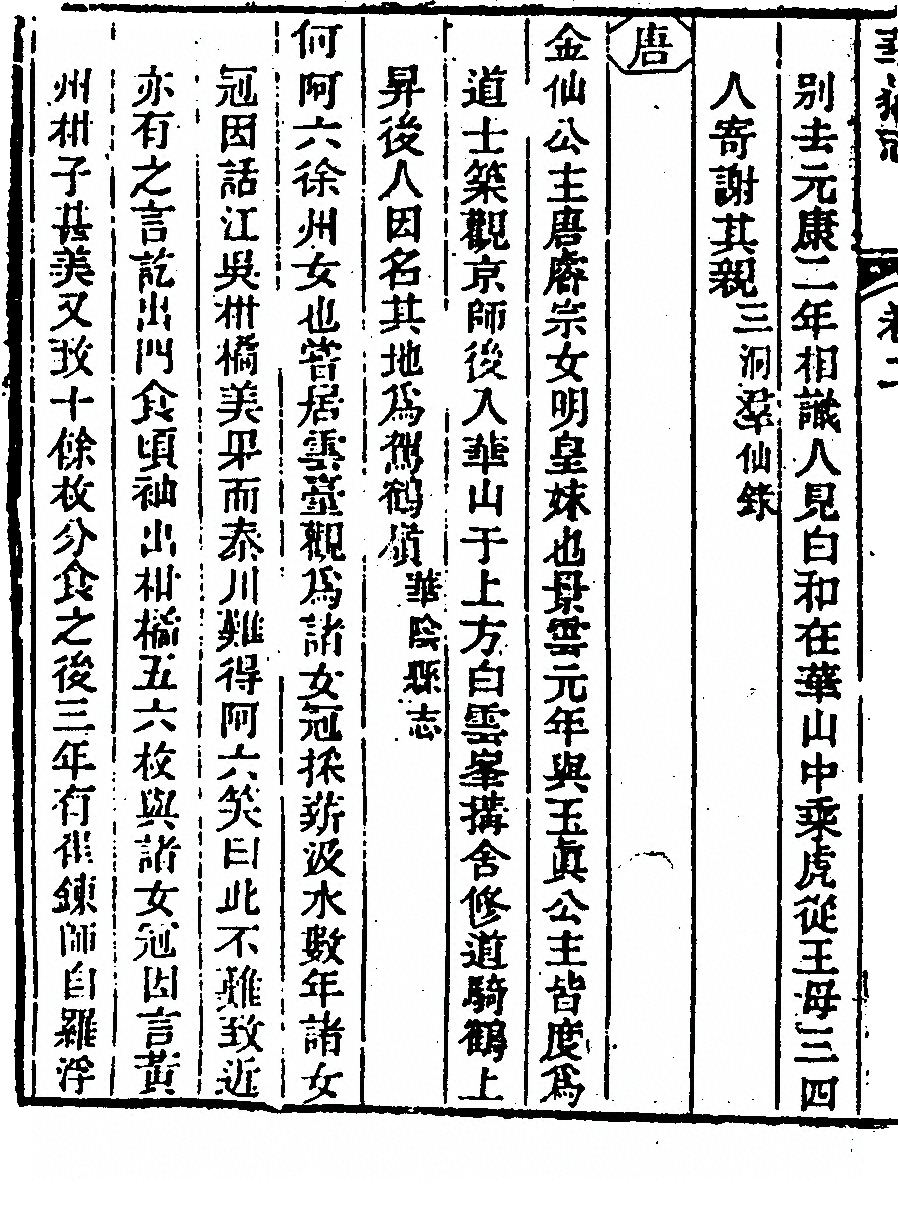 別去元康二年相識人見白和在華山中乘虎從王母三四
人寄謝其親三洞羣仙錄
唐
金仙公主唐睿宗女明皇妹也景雲元年與玉眞公主皆度爲
道士築觀京師後入華山于上方白雲峯搆舍修道騎鶴上
昇後人因名其地爲駕鶴嶺華陰縣志
何阿六徐州女也嘗居雲臺觀爲諸女冠採薪汲水數年諸女
冠因話江吳柑橘美果而秦川難得阿六笑曰此不難致近
亦有之言訖出門食頃袖出柑橘五六枚與諸女冠因言黃
州柑子甚美又致十餘枚分食之後三年有崔鍊師自羅浮